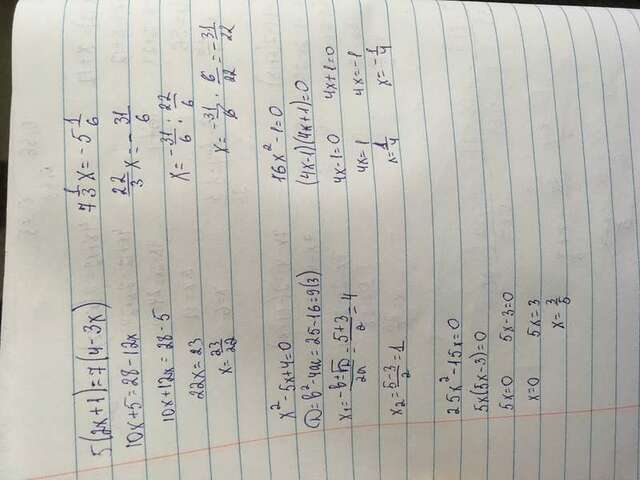 5(2x+1)=7(4-3x)
10x+5=28-12x
10x+12x=28-5
22x=23
x=23/22
7 1/3 x=-5 1/6
22/3 x=-31/6
x=-31/6 : 22/6
x=-31/6 · 6/22=-31/22
x²-5x+4=0
D=b²-4ac=25-16=9(3)
x₁=(-b±√D)/2a=(5+3)/2=4
x₂=(5-3)/2=1
16x²-1=0
(4x-1)(4x+1)=0
4x-1=0 4x+1=0
4x=1 4x=-1
x=1/4 x=-1/4
25x²-15x=0
5x(5x-3)=0
5x=0 5x-3=0
x=0 5x=3
x=3/5